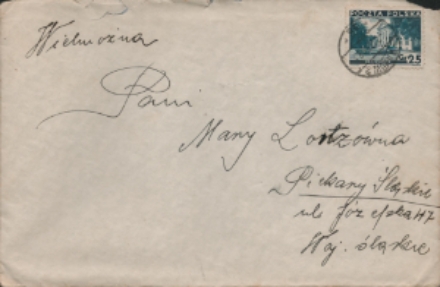 POCZTA POLSKA
25
Wielmożna
Pani
Mary Lortzówna
Piekary Śląskie
ul.
Woj. śląskie